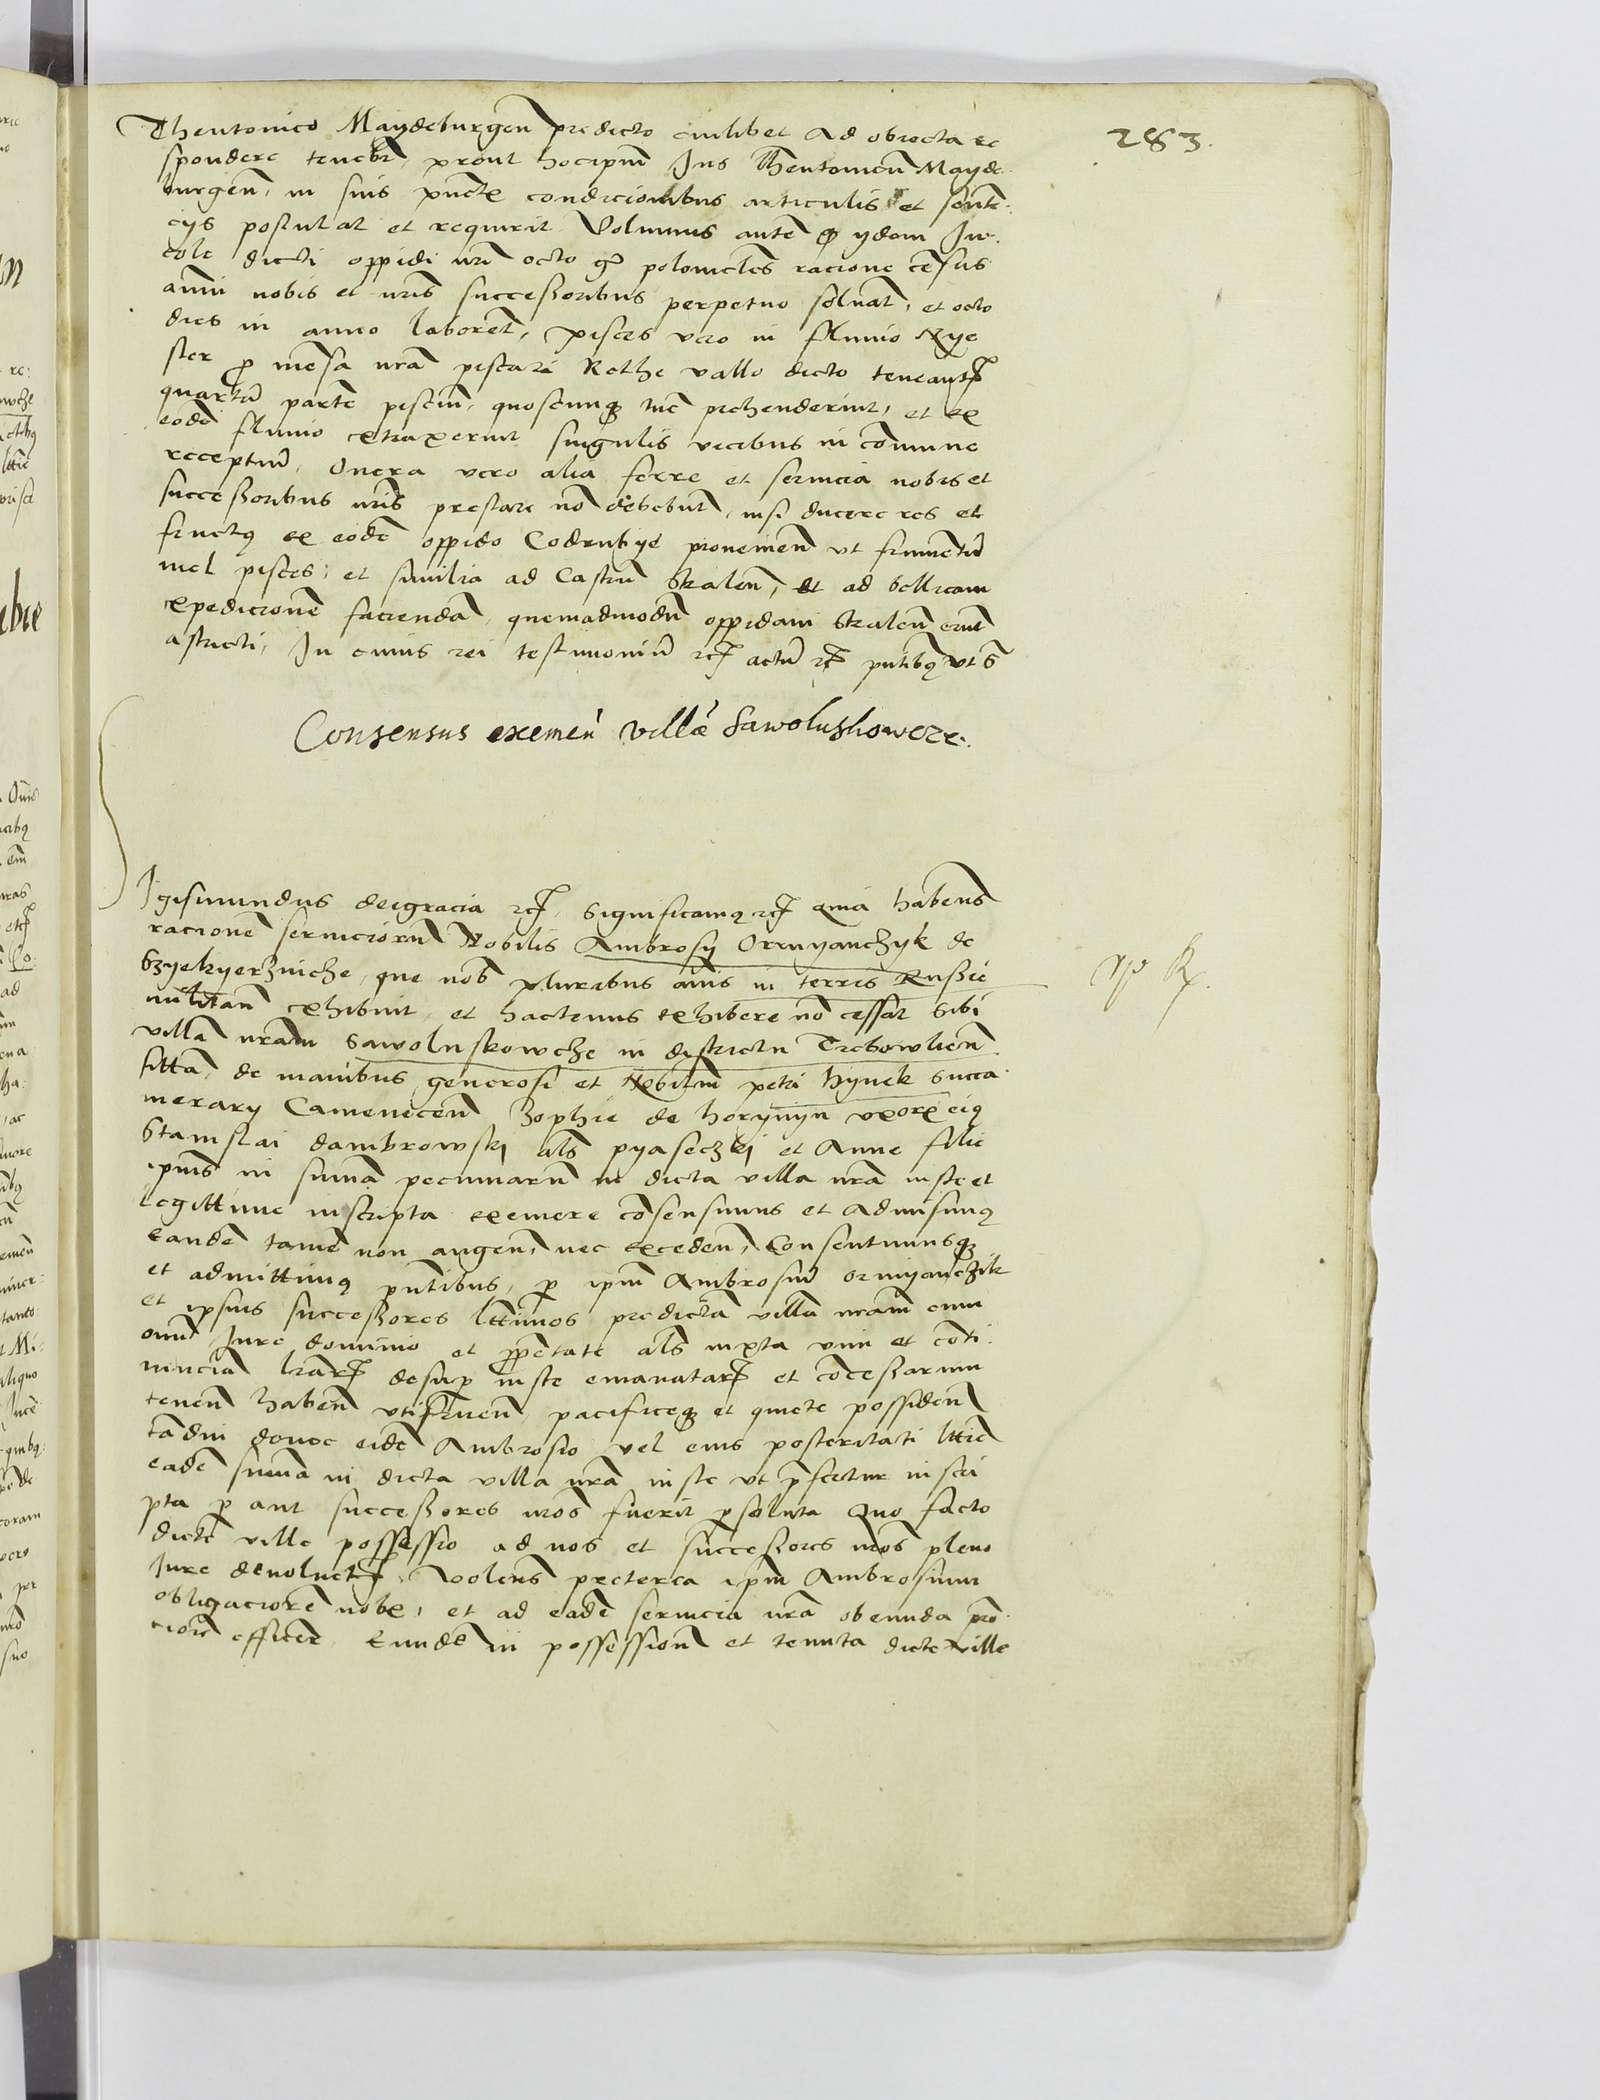 283.
Theutonico Maydeburgeñ predicto cuilibet ad obiecta re
spondere teneb̃r, prout hoc ip̃m Jus Theutonicũ Mayde
burgeñ, in suis punct͠ condicionibus articulis et sente͂
cys postulat et requirit Volumus aute͂ ꝙ ydem In
cole dicti oppidi nr̃i octo gr̃ polonicles racione ce͂sus
anni nobis et nr̃is successoribus perpetuo soluãt, et octo
dies in anno laborẽt, pisces vero in fluuio Nye
ster ꝓ me͂sa nr̃a piscari Rethe vallo dicto teneant̃r
quartã partẽ pisciũ, quoscunq͛ tũc prehenderint, et ex
eodẽ fluuio extraxerint singulis vicibus in cõmune
recepturi, Onera vero alia ferre et seruicia nobis et
successoribus nr̃is prestare nõ debebũt, nisi ducere res et
fructꝰ ex eodẽ oppido Codrubye proueñ ut frumentũ
mel pisces, et similia ad Castrũ Skaleñ, et ad bellicam
expedicionẽ faciendã, quemadmodũ oppidani Skaleñ erũt
astricti, In cuius rei testimoniũ ꝛc̃ actũ ꝛc̃ pñtibꝰ ut s̃
Consensus exemeñ villã Sawoluskowcze.
Sigismundus dei gracia ꝛc̃, Significamꝰ ꝛc̃ quia habeñs
racionẽ seruiciorũ Nobilis Ambrosy Ormyanczyk de
Szyekyerzincze, que nob̃ pluribus annis in terris Russie
militañ exhibuit, et hactenus exhibere nõ cessat Sibi
villã nr̃am Sawoluskowcze in districtu Trebowlieñ
sittã, de manibus generosi et Nobiliũ petri Hynek Succa
merary Cameneceñ Zophie de Horynyn vxorẽ eiꝰ
Stanislai dambrowski als̃ pyaseczki et Anne filie
ipiũs in sum̃a pecuniarũ in dicta villa nr̃a iuste et
legittime inscripta exemere cõsensimus et admisimꝰ
Eandẽ tamẽ non augeñ, nec excedeñ, Consentimusq͛
et admittimꝰ pñtibus, ꝑ ip̃m Ambrosiũ ormyanczik
et ipsius successores lt̃timos predictã villã nr̃am cum
omñi Jure dominio et ꝓprietate als̃ iuxta vim et cõti
nenciam lr̃arũ desuꝑ iuste emanatarũ et cõcessarum
teneñ habeñ vtifrueñ, pacificeq͛ et quiete possideñ
tãdiu donec eidẽ Ambrosio vel eius posteritati lt̃tie
eadẽ sum̃a in dicta villa nr̃a iuste ut p̃fertur inscri
pta ꝑ aut successores nr̃os fuerit ꝑsoluta Quo facto
dicte ville possessio ad nos et successores nr̃os pleno
Jure deuoluet̃r, Voleñs preterea ip̃m Ambrosium
obligaciorẽ nob̃, et ad eadẽ seruicia nr̃a obeunda prõ
ciorẽ efficere, Eundẽ in possessionẽ et tenuta dicte ville